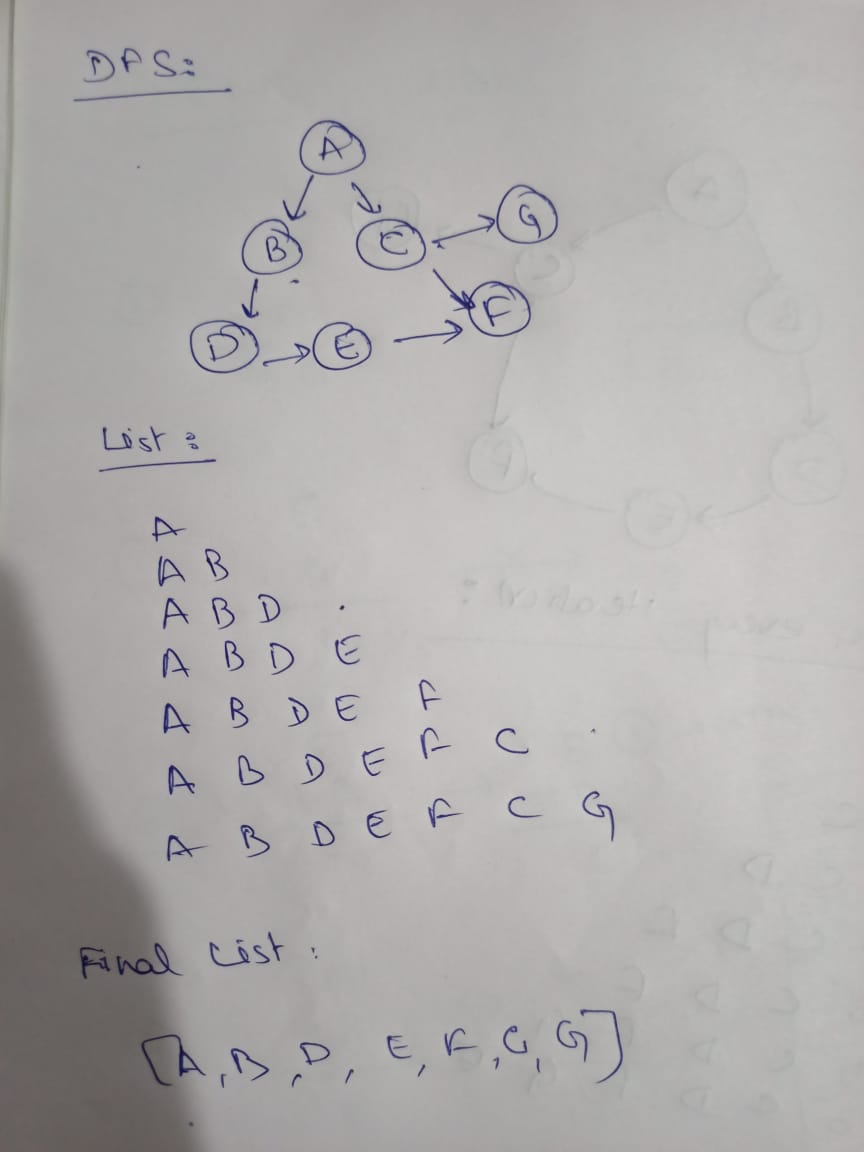 DFS:
A
B C G
D E F
List:
A
A B
A B D
A B D E
A B D E F
A B D E F C
A B D E F C G
Final List:
[A, B, D, E, F, C, G]